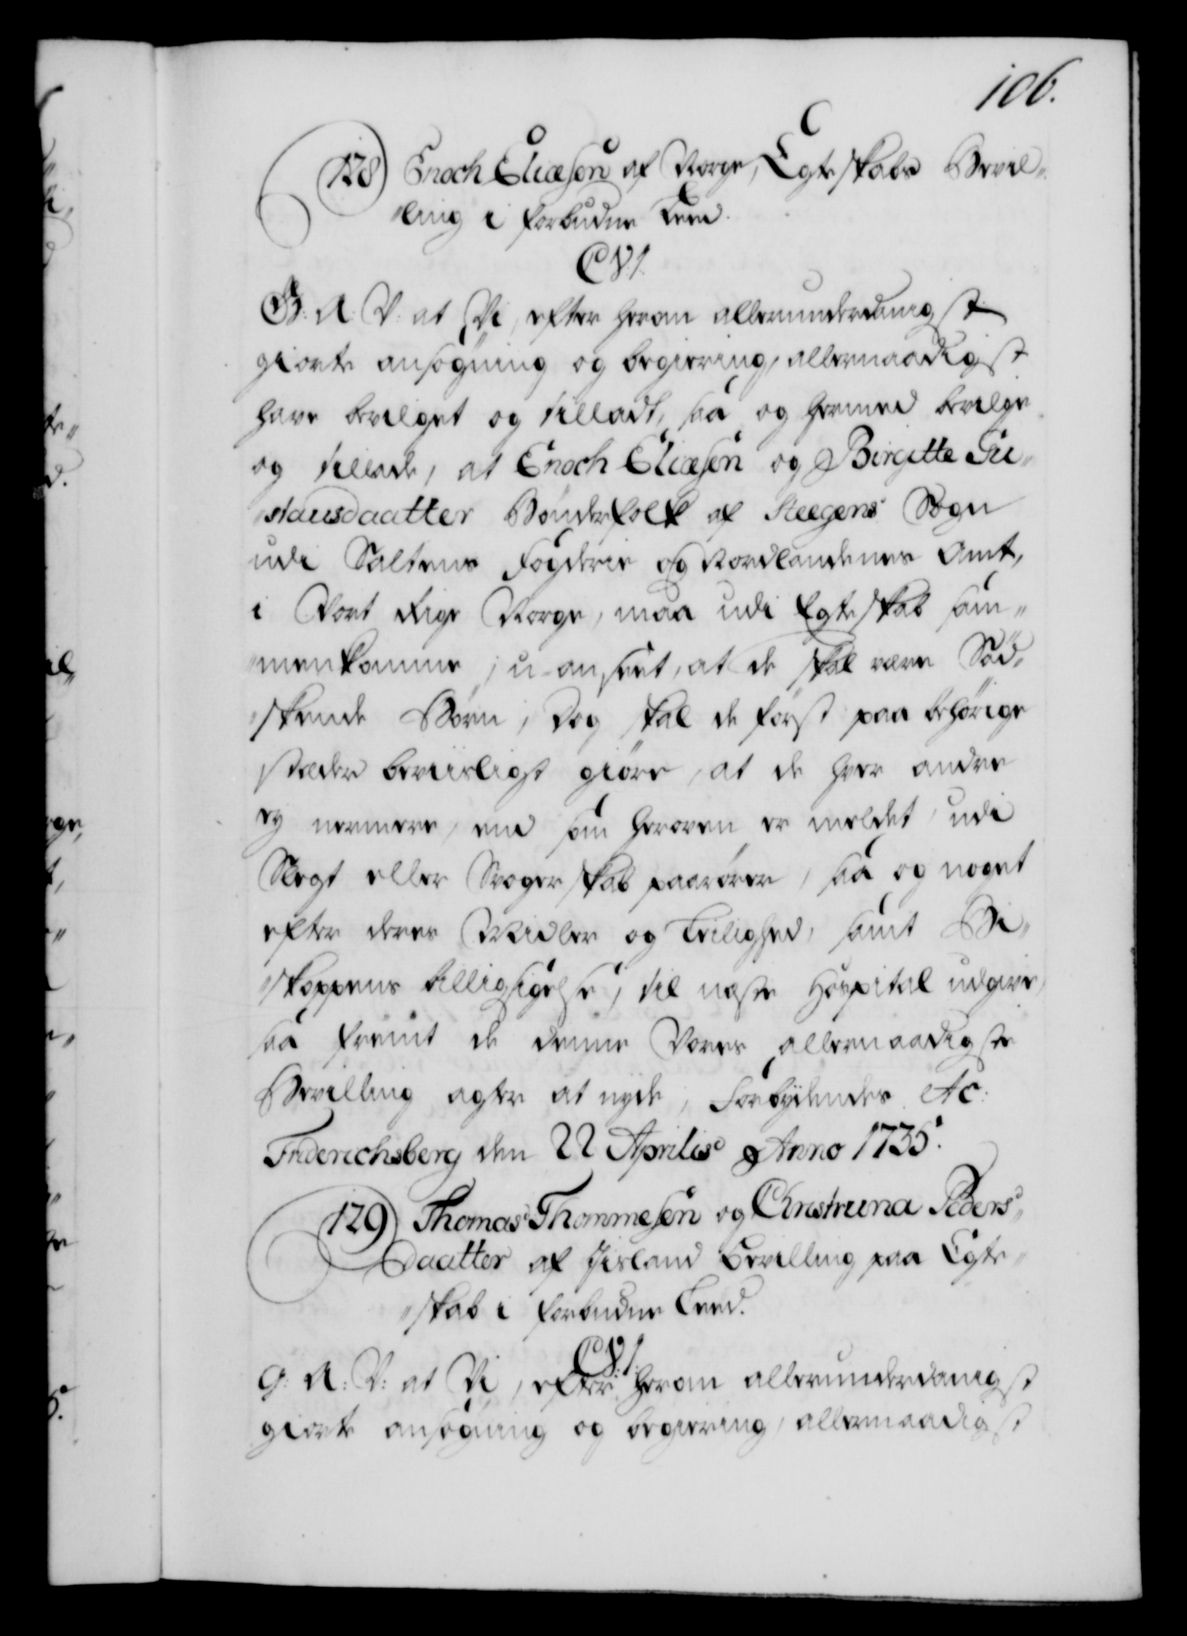 106.
128 Enoch Eliæsøn af Norge, Egteskabs Bevil„
„ling i forbudne Leed.
C V I.
G: A: V: at Vi, efter herom allerunderdanigst
giorte ansøgning og begiering, allernaadigst
have bevilget og tilladt, saa og hermed bevilge
og tillade, at Enoch Eliæsøn og Birgitte Gu„
„stausdaatter Bønderfolk af Steegens Sogn
udi Saltens Fogderie og Nordlandenes Amt,
i Vort Rige Norge, maa udi Egteskab sam„
„menkomme, u-anseet, at de skal være Sød„
„skende Børn; Dog skal de først paa behørige
stæder beviisligt giøre, at de hver andre
ey nermere, end som heroven er meldet, udi
Slegt eller Svogerskab paarører, saa og noget
efter deres Midler og Leilighed, samt Bi„
„skoppens billigsigelse, til neste Hospital udgive,
saa fremt de denne Vores allernaadigste
Bevilling agter at nyde, Forbydendes &c:
Friderichsberg den 22 Aprilis Anno 1735.
129 Thomas Thommesøn og Christruna Peders„
Daatter af Iisland Bevilling paa Egte„
„skab i forbudne Leed.
C V I.
G: A: V: at Vi, efter herom allerunderdanigst
giorte ansøgning og begiering, allernaadigst